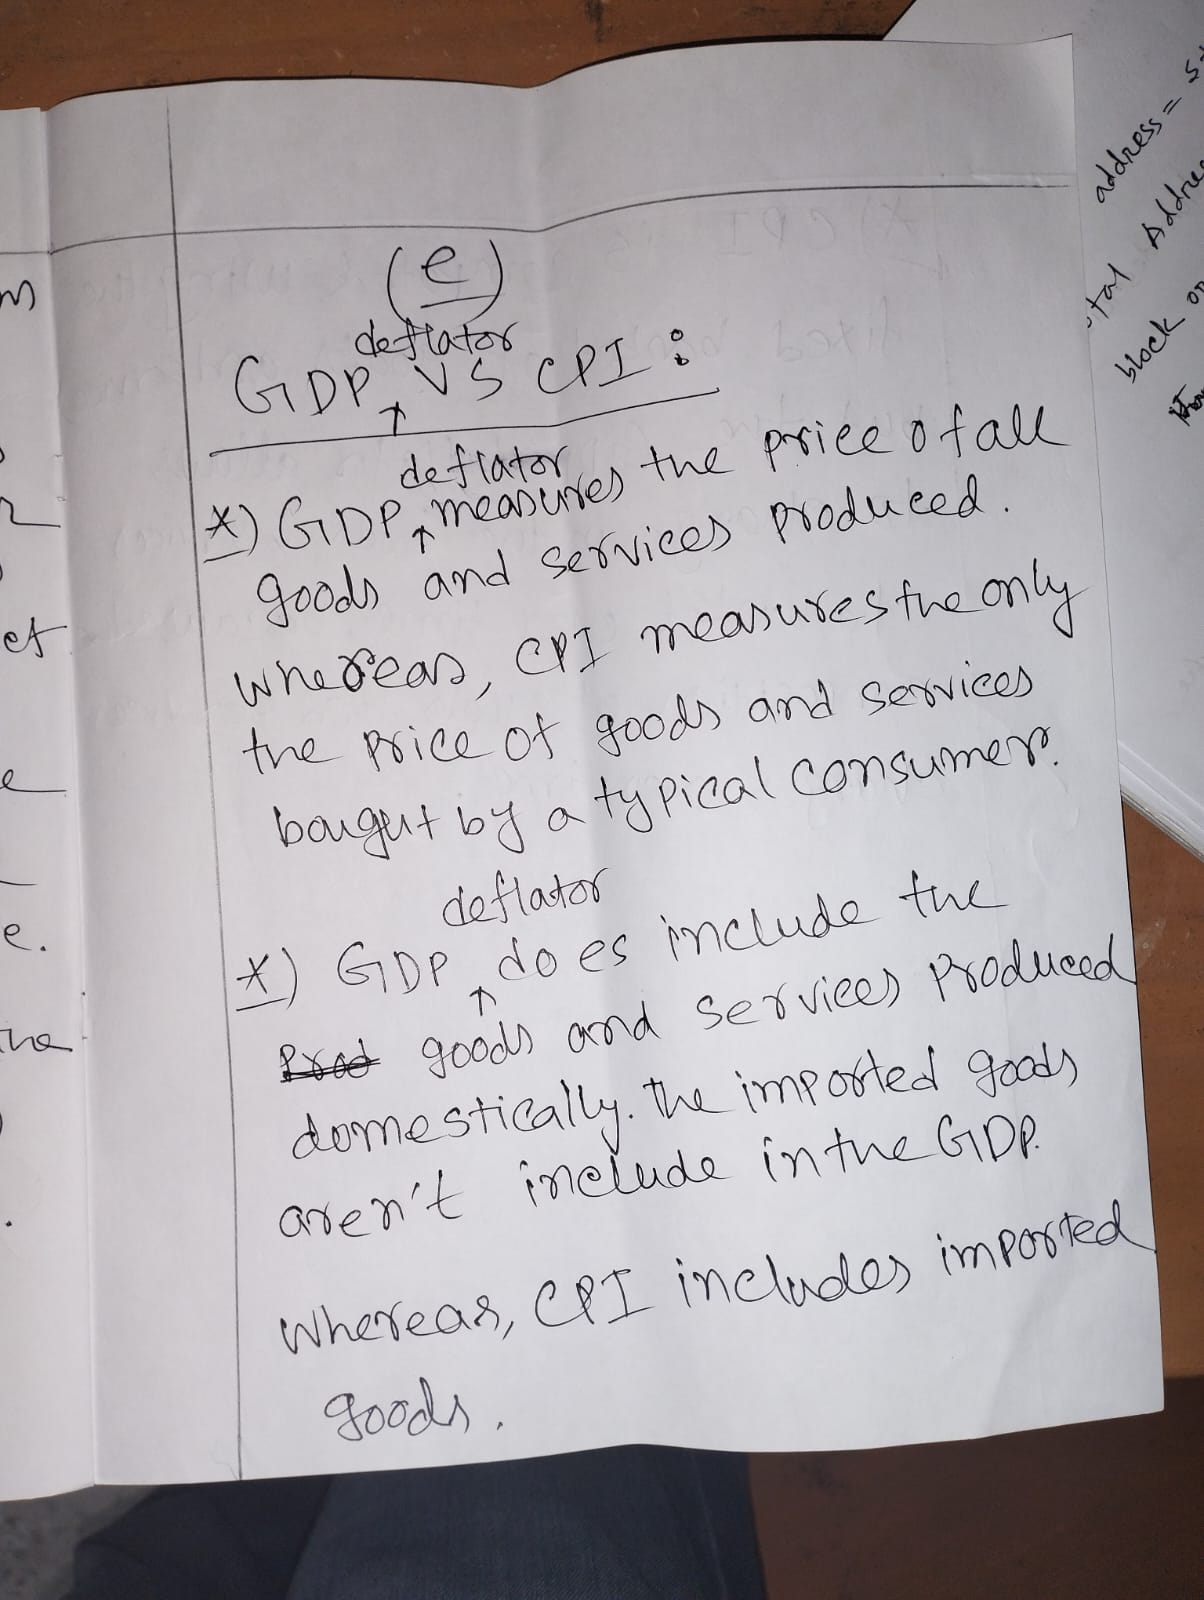 (e)
deflator
GDP ↑ VS CPI :
deflator
*) GDP ↑ measures the price of all
goods and services produced.
whereas, CPI measures the only
the price of goods and services
bought by a typical consumer.
deflator
*) GDP ↑ does include the
Prod goods and services produced
domestically. The imported goods
aren't include in the GDP.
Whereas, CPI includes imported
goods.
address =
Address
block